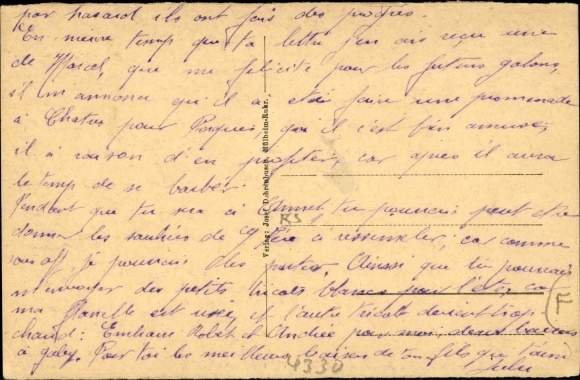 par hasard ils ont fais des progrès.
En même temps que ta lettre j'en ais reçu une
de Marcel, que me félicite pour les futurs galons,
il m'annonce qu'il a été faire une promenade
à Chatres pour Paques, qu'il c'est bien amusé,
il a raison d'en profiter, car après il aura
le temps de se
Pendant que tu sera à tu pourrais peut etre
donner les souliers de à ressemeler, car comme
sous off je pourrais des Aussi que tu pourrais
m'envoyer des petits tricots blancs pour l'été, car
ma flanelle est usée, et l'autre tricot devient trop
chaud: Embrasse et Andrée pour moi,
à Pour toi les meilleurs baisers de ton fils qui t'aime
Verlag: Josef Dohrenbusch, Mülheim-Ruhr.
RS
F
4330